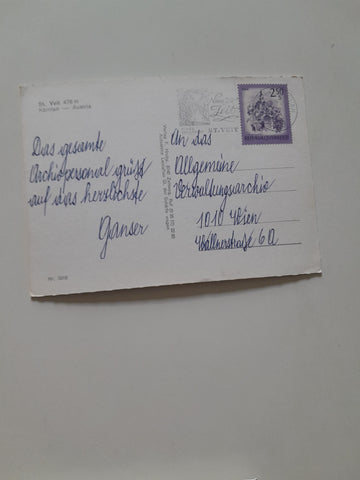 St. Veit 476 m
Kärnten — Austria
Das gesamte
Archivpersonal grüßt
auf das herzlichste
Ganser
An das
Allgemeine
Verwaltungsarchiv
1010 Wien
Wallnerstraße 6A
2.50
ST. VEIT